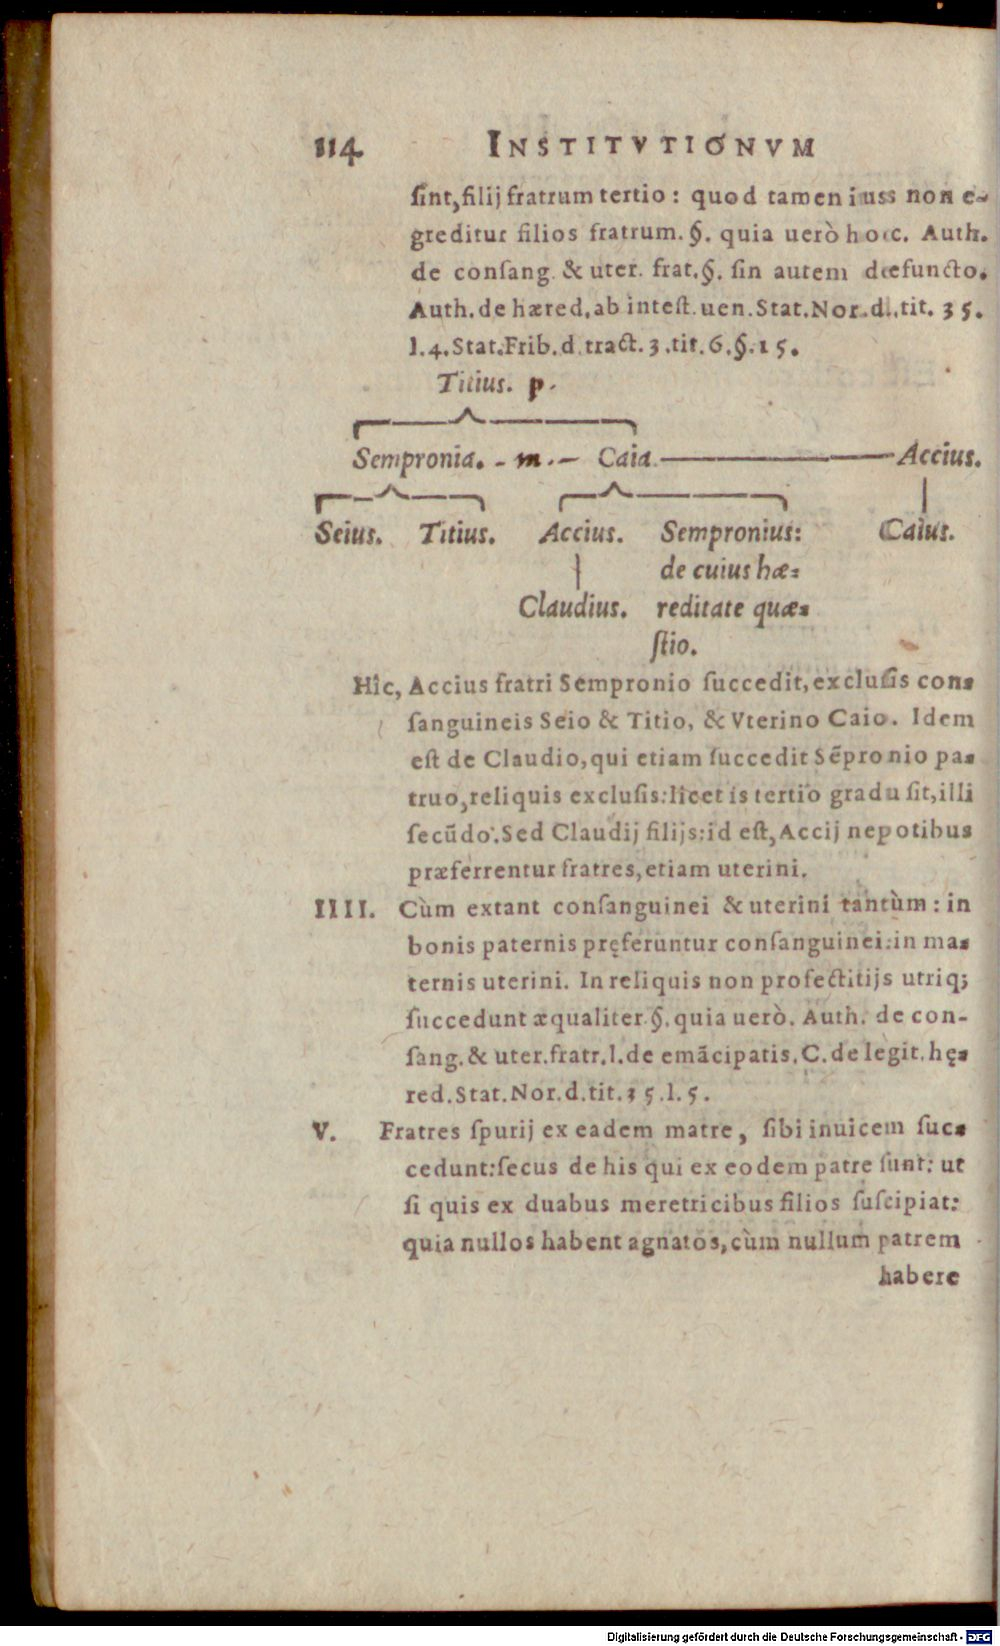 114 INSTITVTIONVM
ſint, filij fratrum tertio: quod tamen iuss non e-
greditur filios fratrum. §. quia uerò hoc. Auth.
de conſang. & uter. frat. §. ſin autem defuncto.
Auth. de hæred. ab inteſt. uen. Stat. Nor. d. tit. 35.
l. 4. Stat. Frib. d. tract. 3. tit. 6. §. 15.
Titius. p.
Sempronia. - m. - Caia. Accius.
Seius. Titius. Accius. Sempronius: Caius.
de cuius hæ=
Claudius. reditate quæ=
ſtio.
Hîc, Accius fratri Sempronio ſuccedit, excluſis con=
ſanguineis Seio & Titio, & Vterino Caio. Idem
eſt de Claudio, qui etiam ſuccedit Sẽpronio pa=
truo, reliquis excluſis: licet is tertio gradu ſit, illi
ſecũdo. Sed Claudij filijs: id eſt, Accij nepotibus
præferrentur fratres, etiam uterini.
IIII. Cùm extant conſanguinei & uterini tantùm: in
bonis paternis pręferuntur conſanguinei: in ma=
ternis uterini. In reliquis non profectitijs utriq;
ſuccedunt æqualiter §. quia uerò. Auth. de con-
ſang. & uter. fratr. l. de emãcipatis. C. de legit. hę=
red. Stat. Nor. d. tit. 35. l. 5.
V. Fratres ſpurij ex eadem matre, ſibi inuicem ſuc=
cedunt: ſecus de his qui ex eodem patre ſunt: ut
ſi quis ex duabus meretricibus filios ſuſcipiat:
quia nullos habent agnatos, cùm nullum patrem
habere
Digitalisierung gefördert durch die Deutsche Forschungsgemeinschaft - DFG